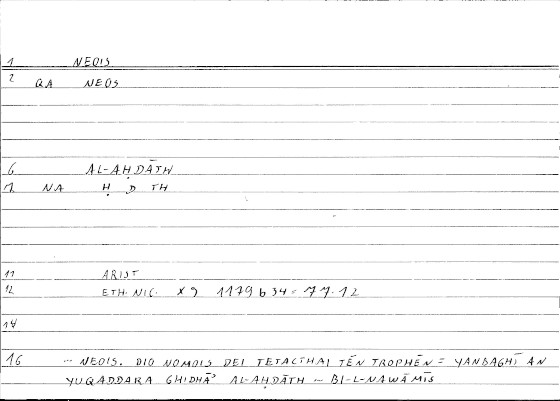 1 NEOIS
2 QA NEOS
6 AL-AḤDĀTH
7 NA Ḥ D TH
11 ARIST
12 ETH. NIC. X 9 1179 b 34 = 77.12
14
16 ... NEOIS. DIO NOMOIS DEI TETACTHAI TĒN TROPHĒN = YANBAGHĪ AN
YUQADDARA GHIDHĀʾ AL-AḤDĀTH ... BI-L-NAWĀMĪS